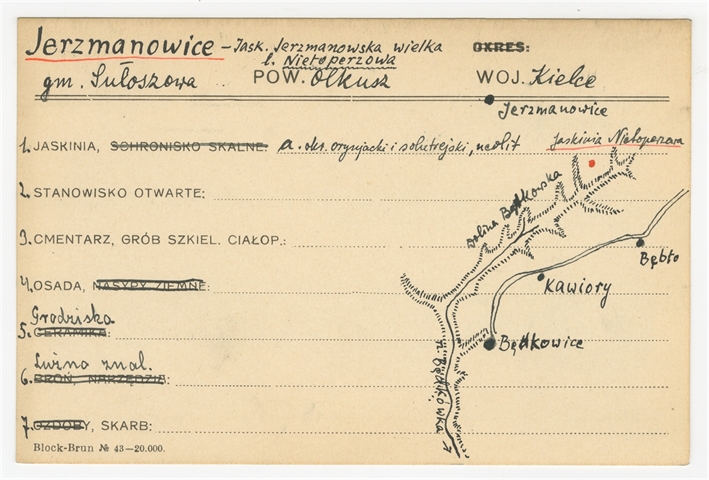 Jerzmanowice – Jask. Jerzmanowska wielka OKRES:
l. Nietoperzowa
gm. Sułoszowa POW. Olkusz WOJ. Kielce
Jerzmanowice
1. JASKINIA, SCHRONISKO SKALNE: a. oks. orynjacki i solutrejski, neolit Jaskinia Nietoperzowa
2. STANOWISKO OTWARTE:
Dolina Będkowska
3. CMENTARZ, GRÓB SZKIEL. CIAŁOP.:
Bębło
4. OSADA, NASYPY ZIEMNE:
Kawiory
Grodziska
5. CERAMIKA:
Będkowice
Luźno znal.
6. BROŃ, NARZĘDZIA:
r. Będkówka
7. OZDOBY, SKARB:
Block-Brun № 43—20.000.